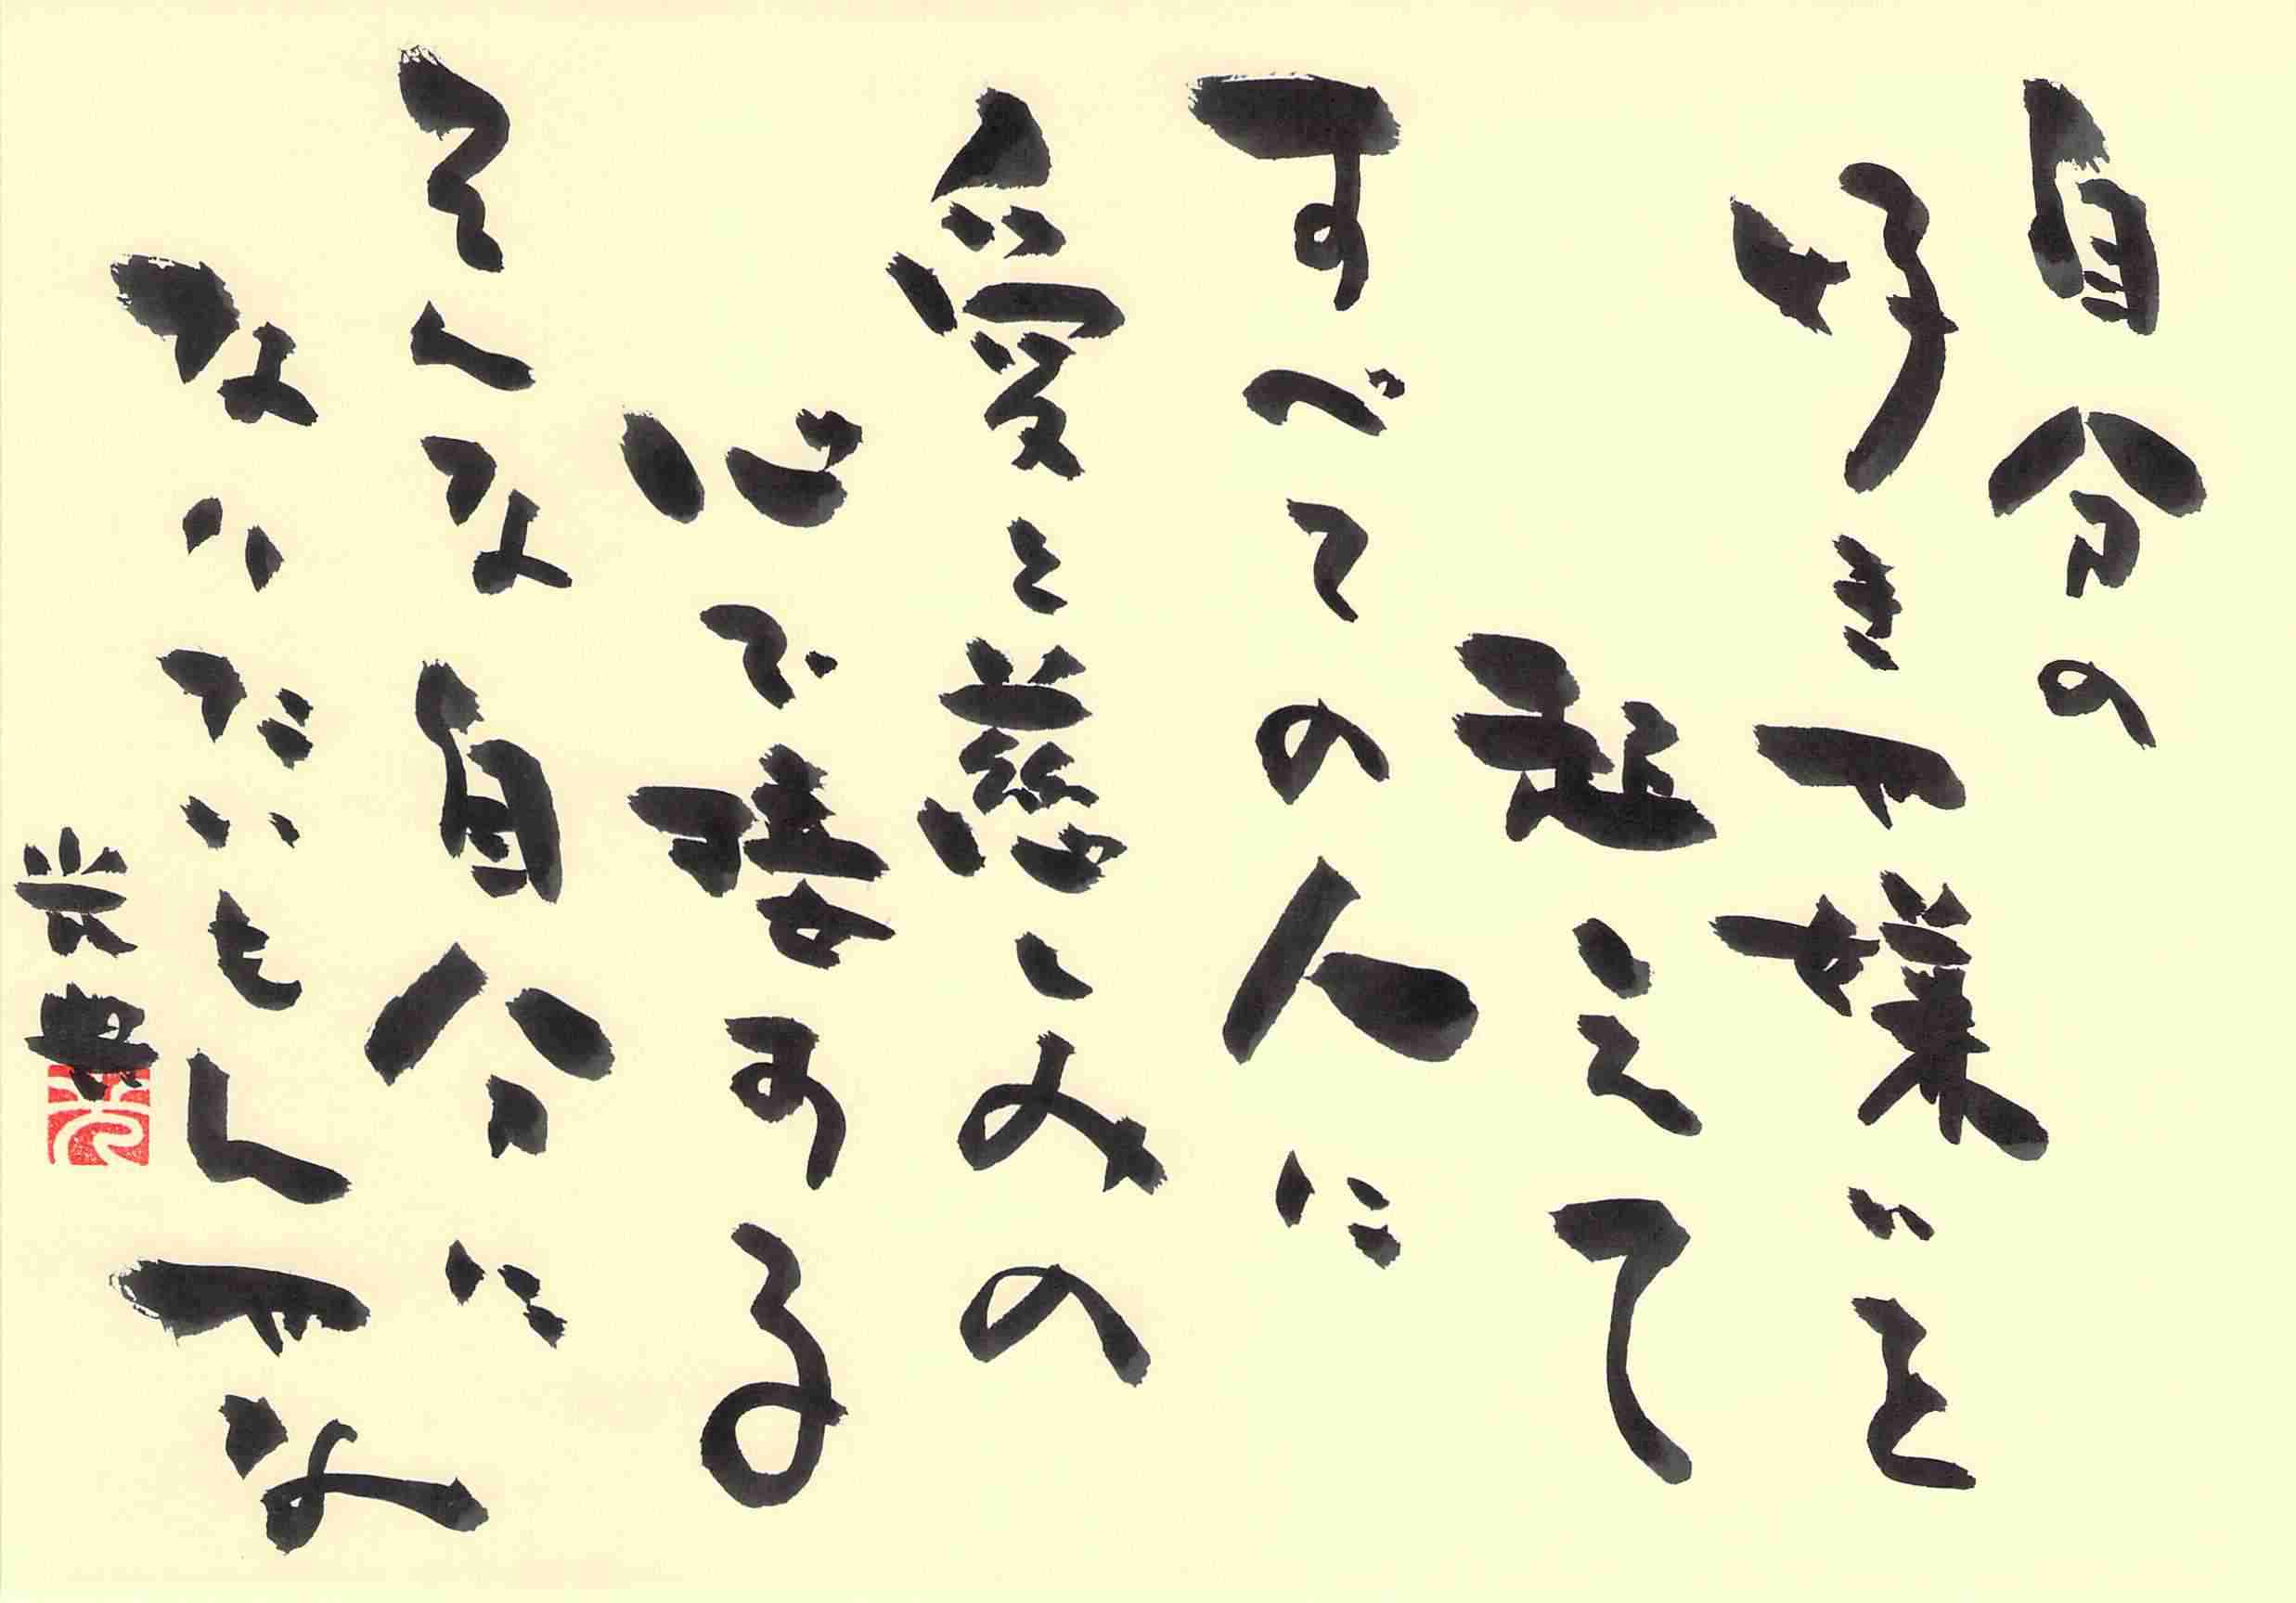 自分の
好きや嫌いを
超えて
すべての人に
愛と慈しみの
心で接する
そんな自分に
なりたいもんやな
光典
光